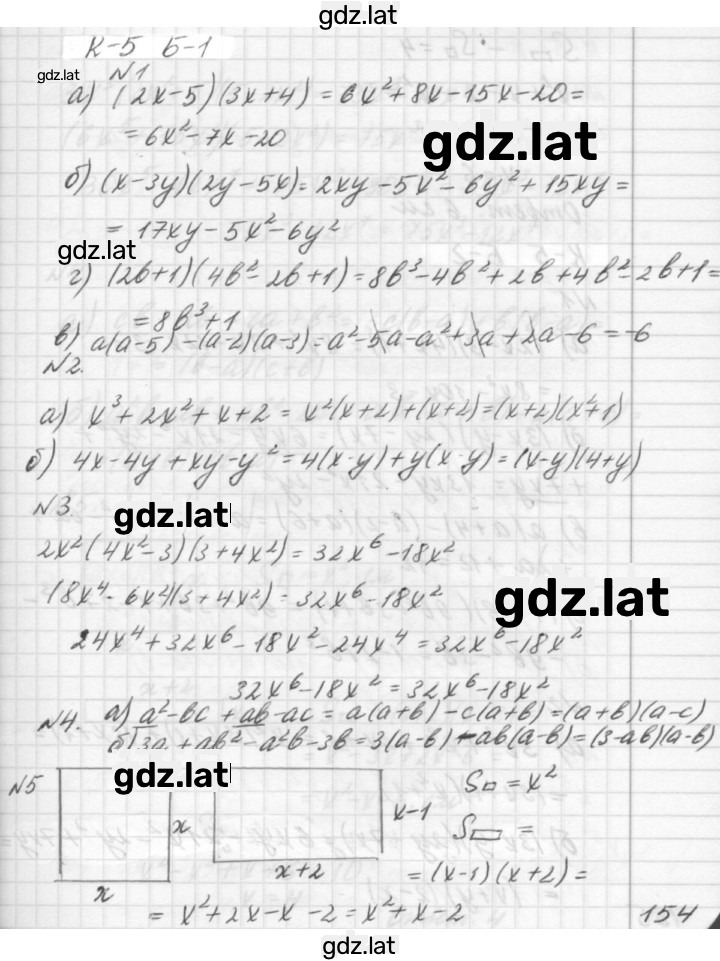 gdz.lat
К-5 Б-1
gdz.lat
№1
а) (2x-5)(3x+4) = 6x²+8x-15x-20=
= 6x²-7x-20
gdz.lat
б) (x-3y)(2y-5x)= 2xy-5x²-6y²+15xy=
= 17xy-5x²-6y²
gdz.lat
г) (2b+1)(4b²-2b+1)=8b³-4b²+2b+4b²-2b+1=
=8b³+1
в) a(a-5)-(a-2)(a-3)=a²-5a-a²+3a+2a-6=-6
№2.
а) x³+2x²+x+2 = x²(x+2)+(x+2)=(x+2)(x²+1)
б) 4x-4y+xy-y²=4(x-y)+y(x-y)=(x-y)(4+y)
№3.
gdz.lat
2x²(4x²-3)(3+4x²)=32x⁶-18x²
(8x⁴-6x²)(3+4x²)=32x⁶-18x²
gdz.lat
24x⁴+32x⁶-18x²-24x⁴=32x⁶-18x²
32x⁶-18x²=32x⁶-18x²
№4. а) a²-bc+ab-ac=a(a+b)-c(a+b)=(a+b)(a-c)
б) 3a+ab²-a²b-3b=3(a-b)-ab(a-b)=(3-ab)(a-b)
gdz.lat
№5
x
x
x+2
x-1
S□=x²
S▭=
=(x-1)(x+2)=
= x²+2x-x-2=x²+x-2
154
gdz.lat